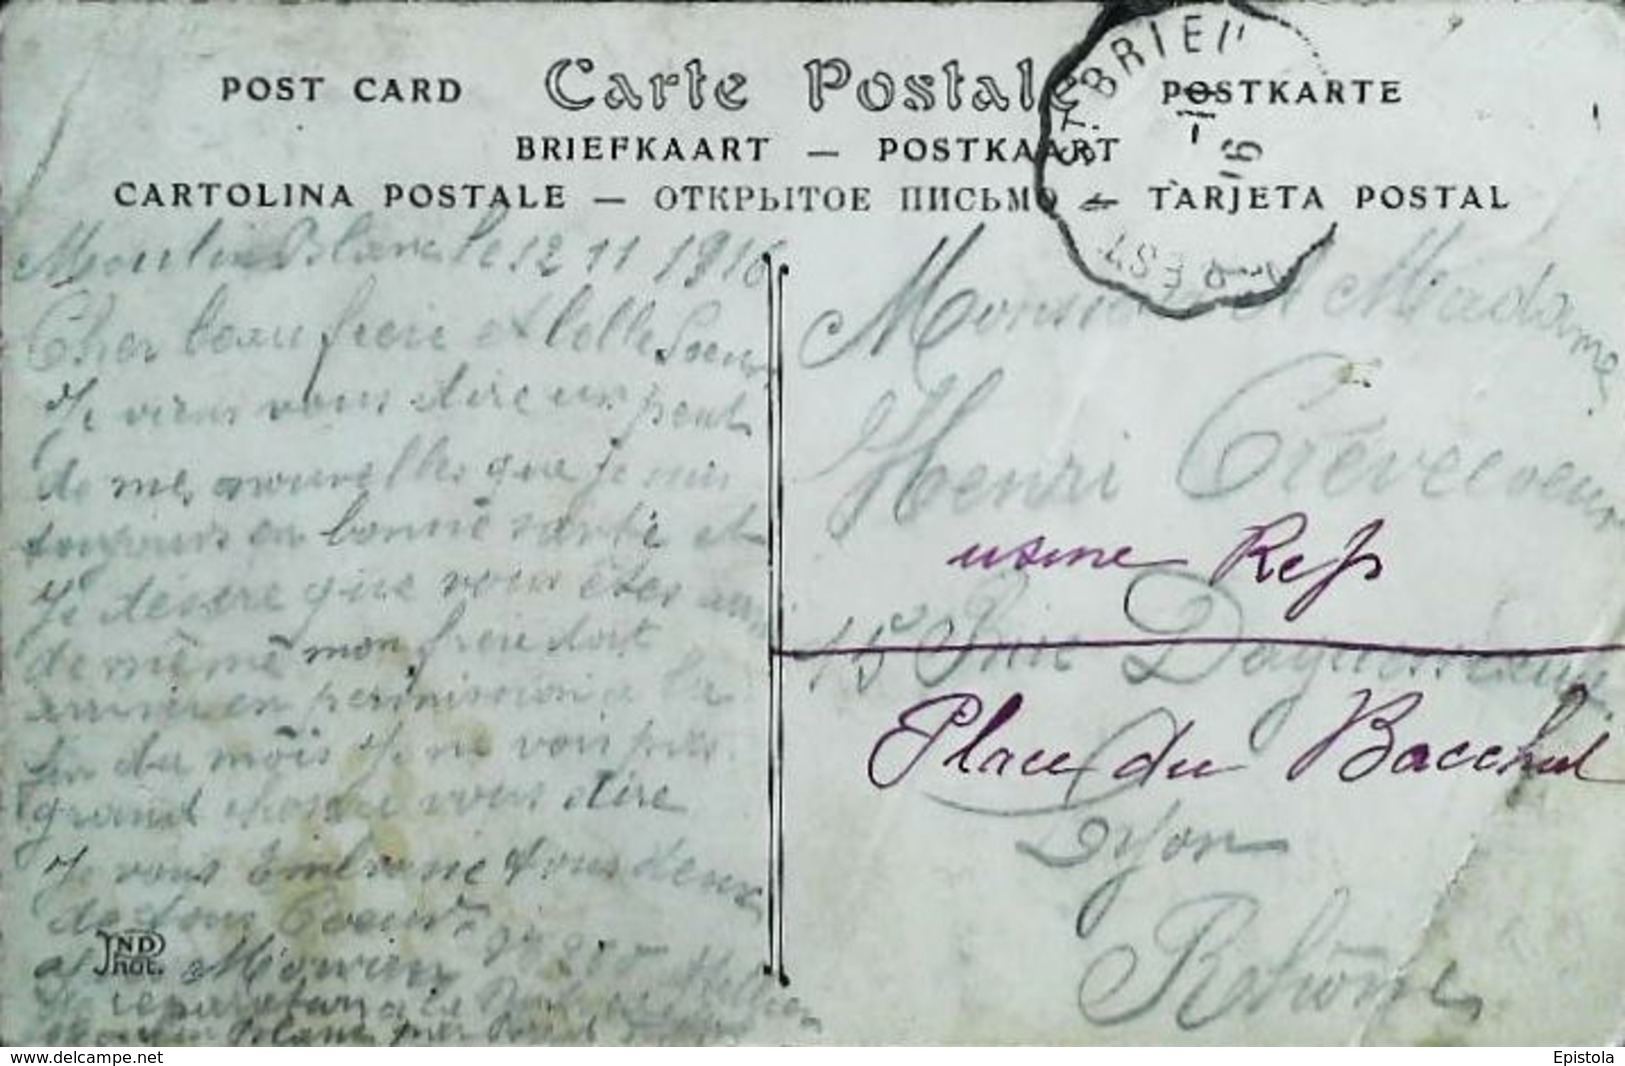 POST CARD Carte Postale POSTKARTE
BRIEFKAART — POSTKAART
CARTOLINA POSTALE — ОТКРЫТОЕ ПИСЬМО — TARJETA POSTAL
ST BRIEU
16
BREST
Moulin Blanc le 12 11 1916
Cher beau frere et belle Soeur
Je viens vous dire un peut
de mes nouvelles que je suis
toujours en bonne santé et
Je desere que vous êtes
de même mon frere doit
arriver en permission a la
fin du mois Je ne vois pas
grand chose a vous dire
Je vous Embrasse tous deux
de tout Coeur
Moulin Blanc par
ND Phot.
Monsieur et Madame
Henri Crêvecoeur
usine Rep
15 Rue
Place du Bacchul
Lyon
Rhône
www.delcampe.net
Epistola